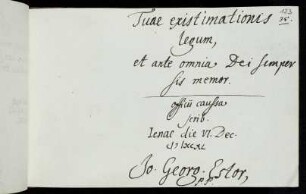 123
75.
Tuae existimationis
legum,
et ante omnia Dei semper
sis memor.
officii caussa
scrib.
Ienae die VI. Dec.
Jo. Georg. Estor,